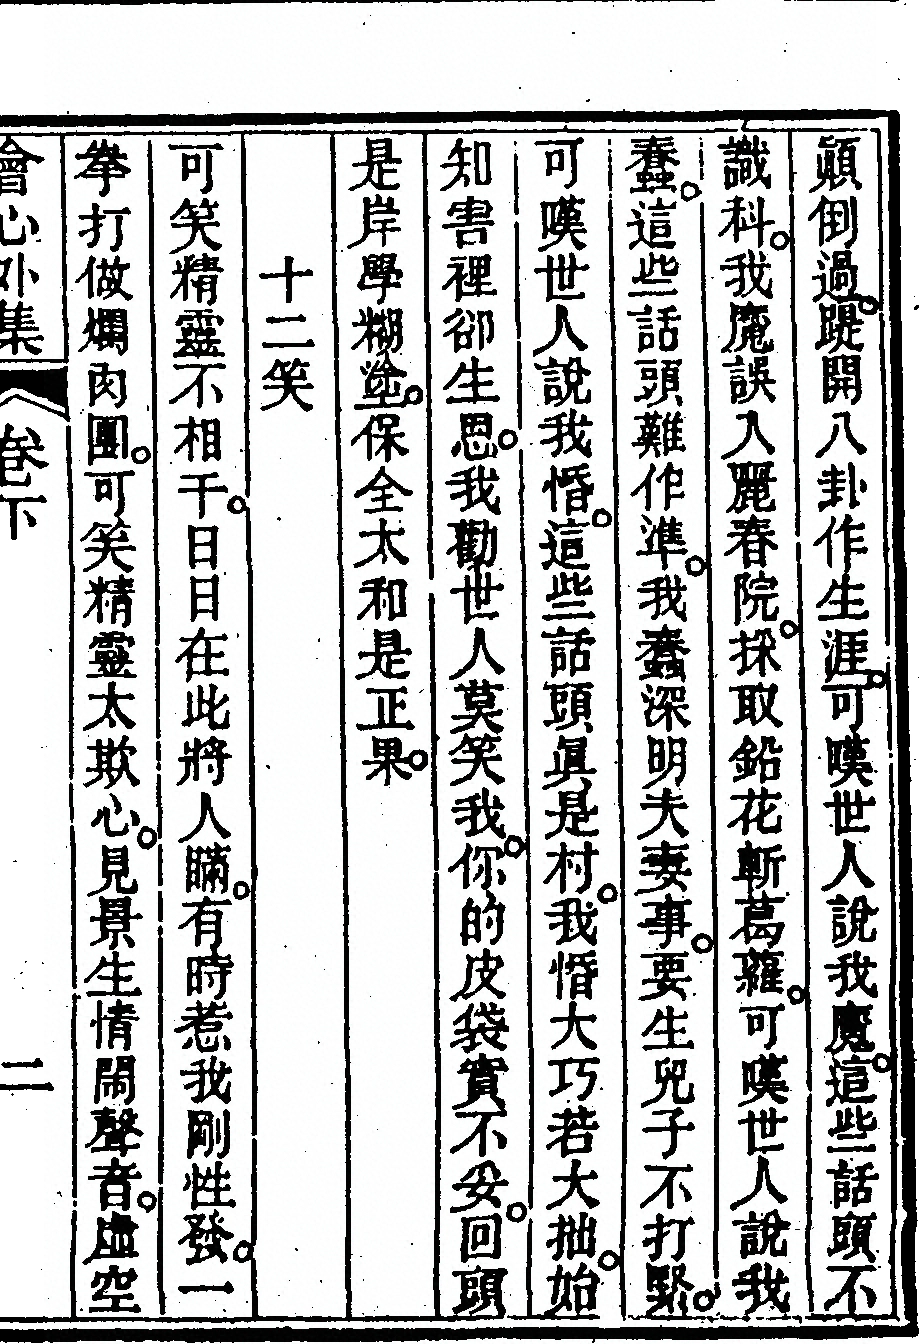 顛倒過。踶開八卦作生涯。可嘆世人說我魔。這些話頭不
識科。我魔誤入麗春院。採取鉛花斬葛蘿。可嘆世人說我
蠢。這些話頭難作準。我蠢深明夫妻事。要生兒子不打緊。
可嘆世人說我惛。這些話頭眞是村。我惛大巧若大拙。始
知害裡卻生恩。我勸世人莫笑我。你的皮袋實不妥。回頭
是岸學糊塗。保全太和是正果。
十二笑
可笑精靈不相干。日日在此將人瞞。有時惹我剛性發。一
拳打做爛肉團。可笑精靈太欺心。見景生情鬧聲音。虛空
會心外集 卷下 二